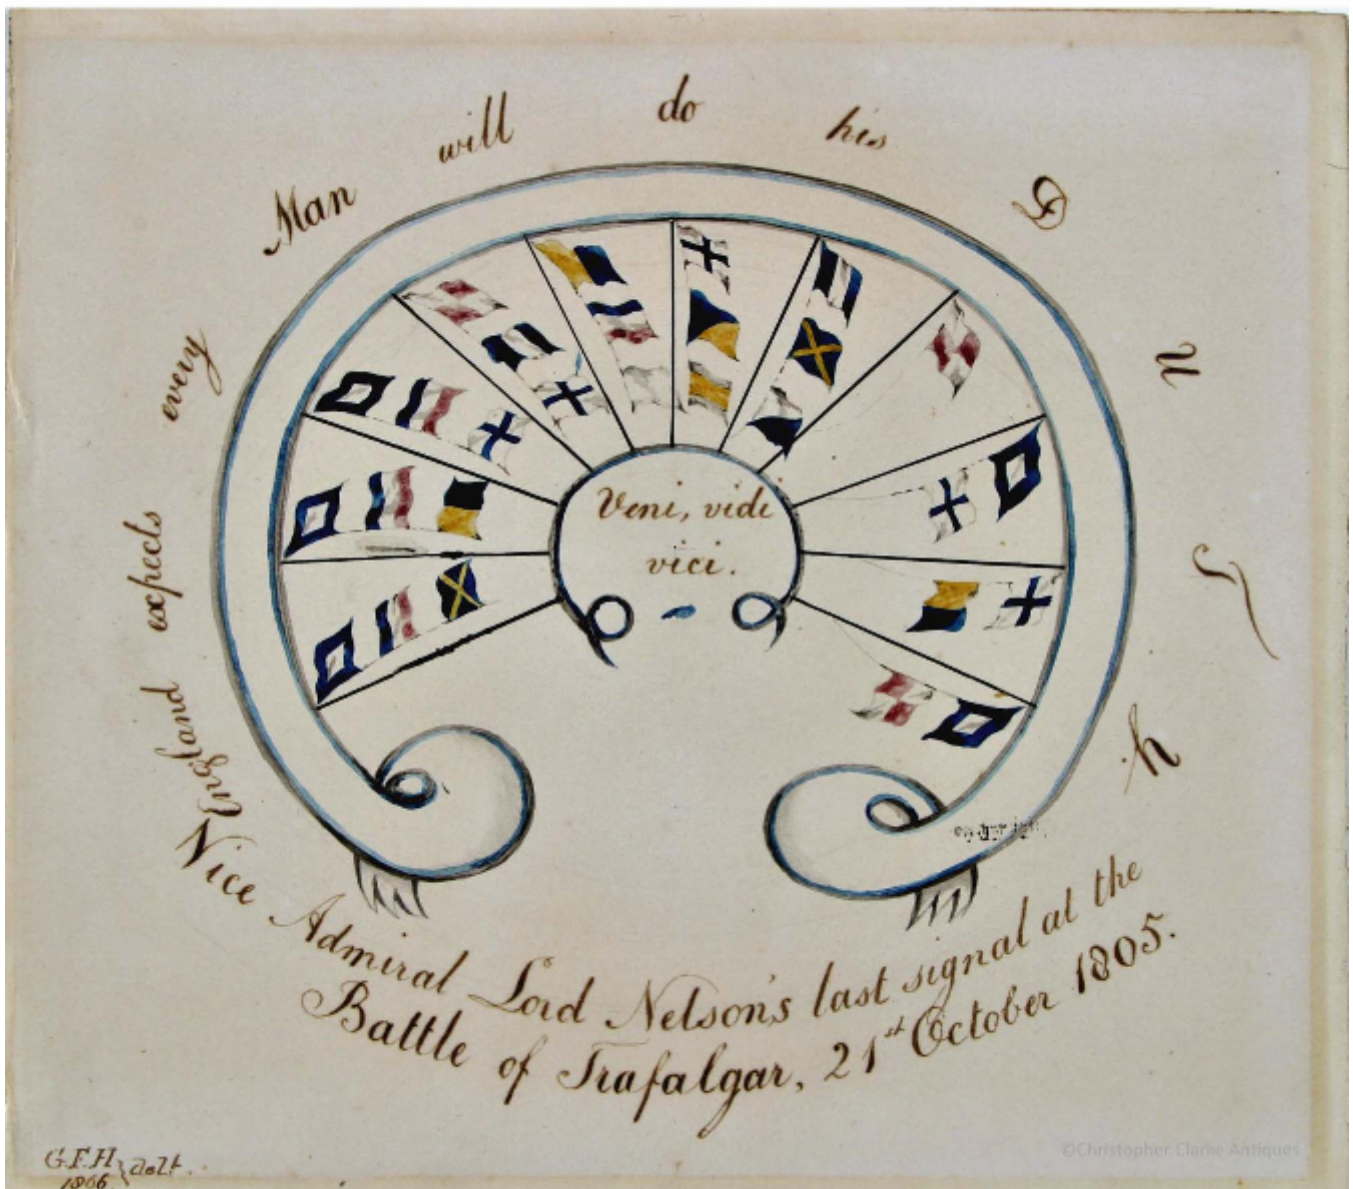 England expects every Man will do his DUTy
Veni, vidi
vici.
Vice Admiral Lord Nelson's last signal at the
Battle of Trafalgar, 21st October 1805.
G.F.H
1866
©Christopher Clarke Antiques